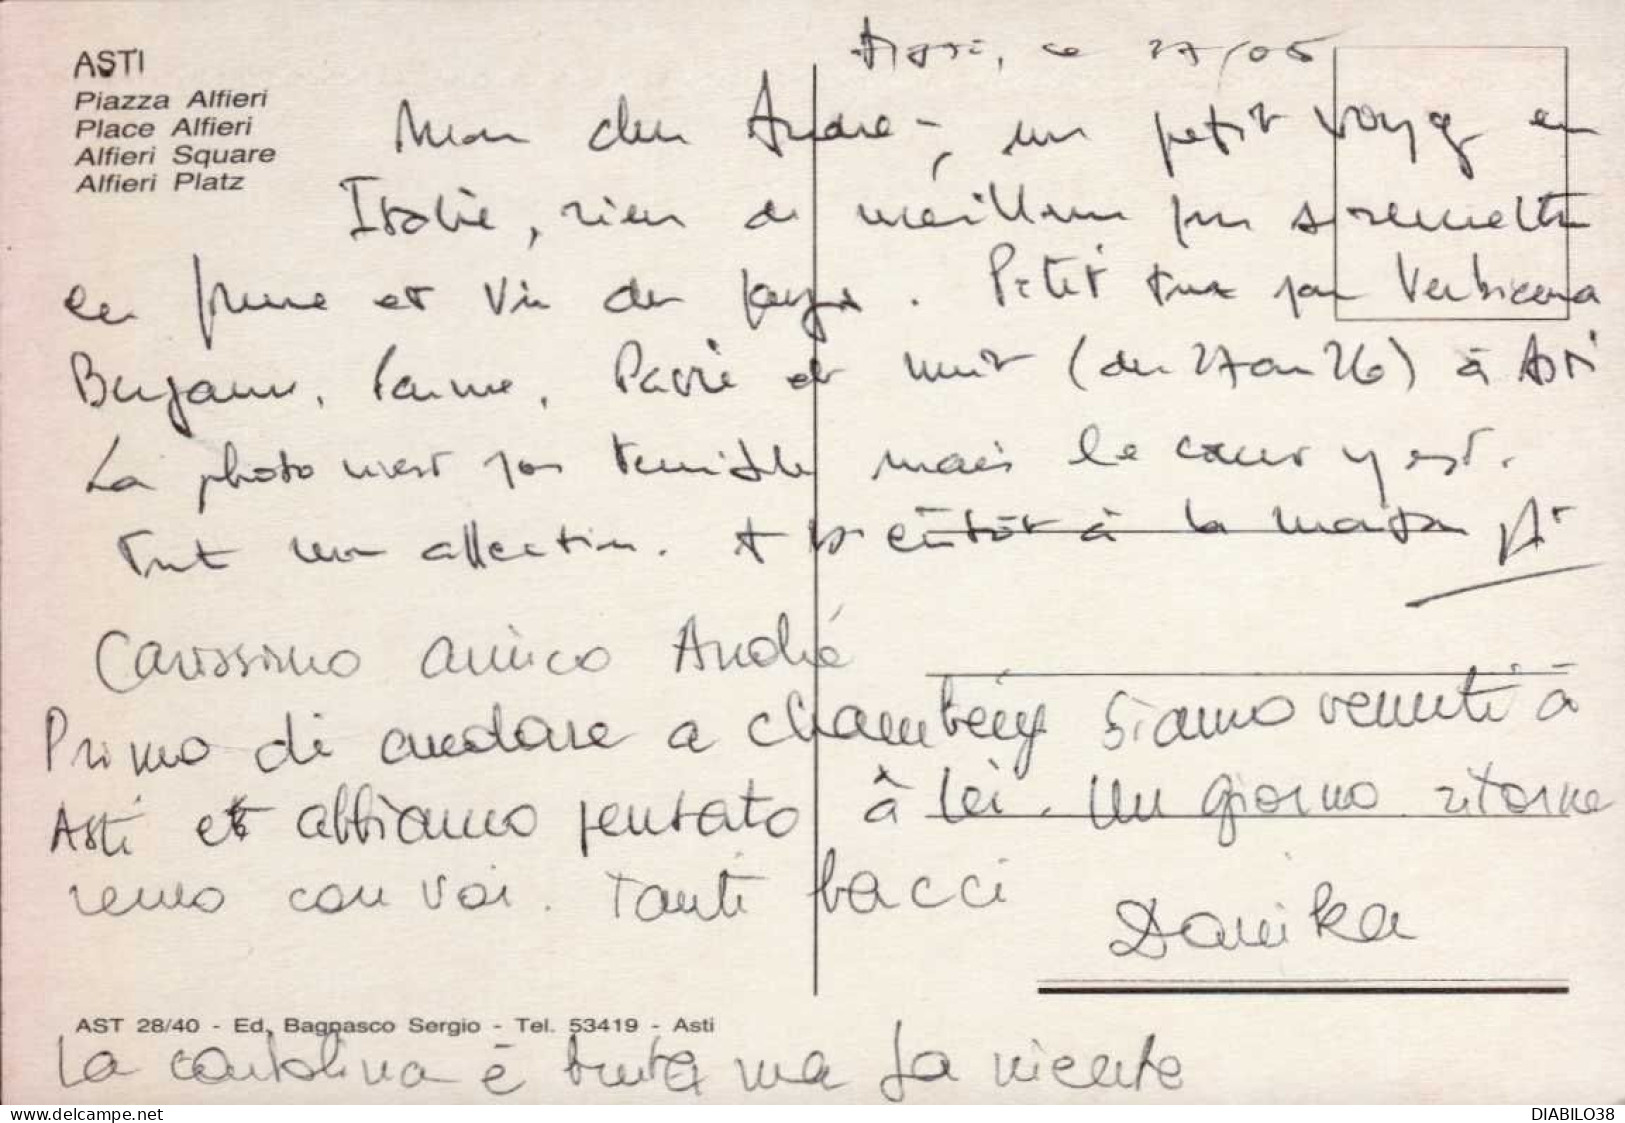 ASTI
Piazza Alfieri
Place Alfieri
Alfieri Square
Alfieri Platz
Asti, ce 27/05
Mon cher André, un petit voyage en
Italie, rien de meilleur pour se remettre
en forme et vin du pays. Petit tour par
Bergame, Parme, Pavie et nuit (du 27 au 26) à Asti
La photo n'est pas terrible mais le cœur y est.
Toute mon affection. A bientôt à la maison
Carissimo amico André
Primo di andare a Chambéry siamo venuti à
Asti et abbiamo pensato à lei. Un giorno ritorne
remo con voi. Tanti bacci
Danika
AST 28/40 - Ed. Bagnasco Sergio - Tel. 53419 - Asti
La cartolina è bruta ma fa niente
DIABILO38